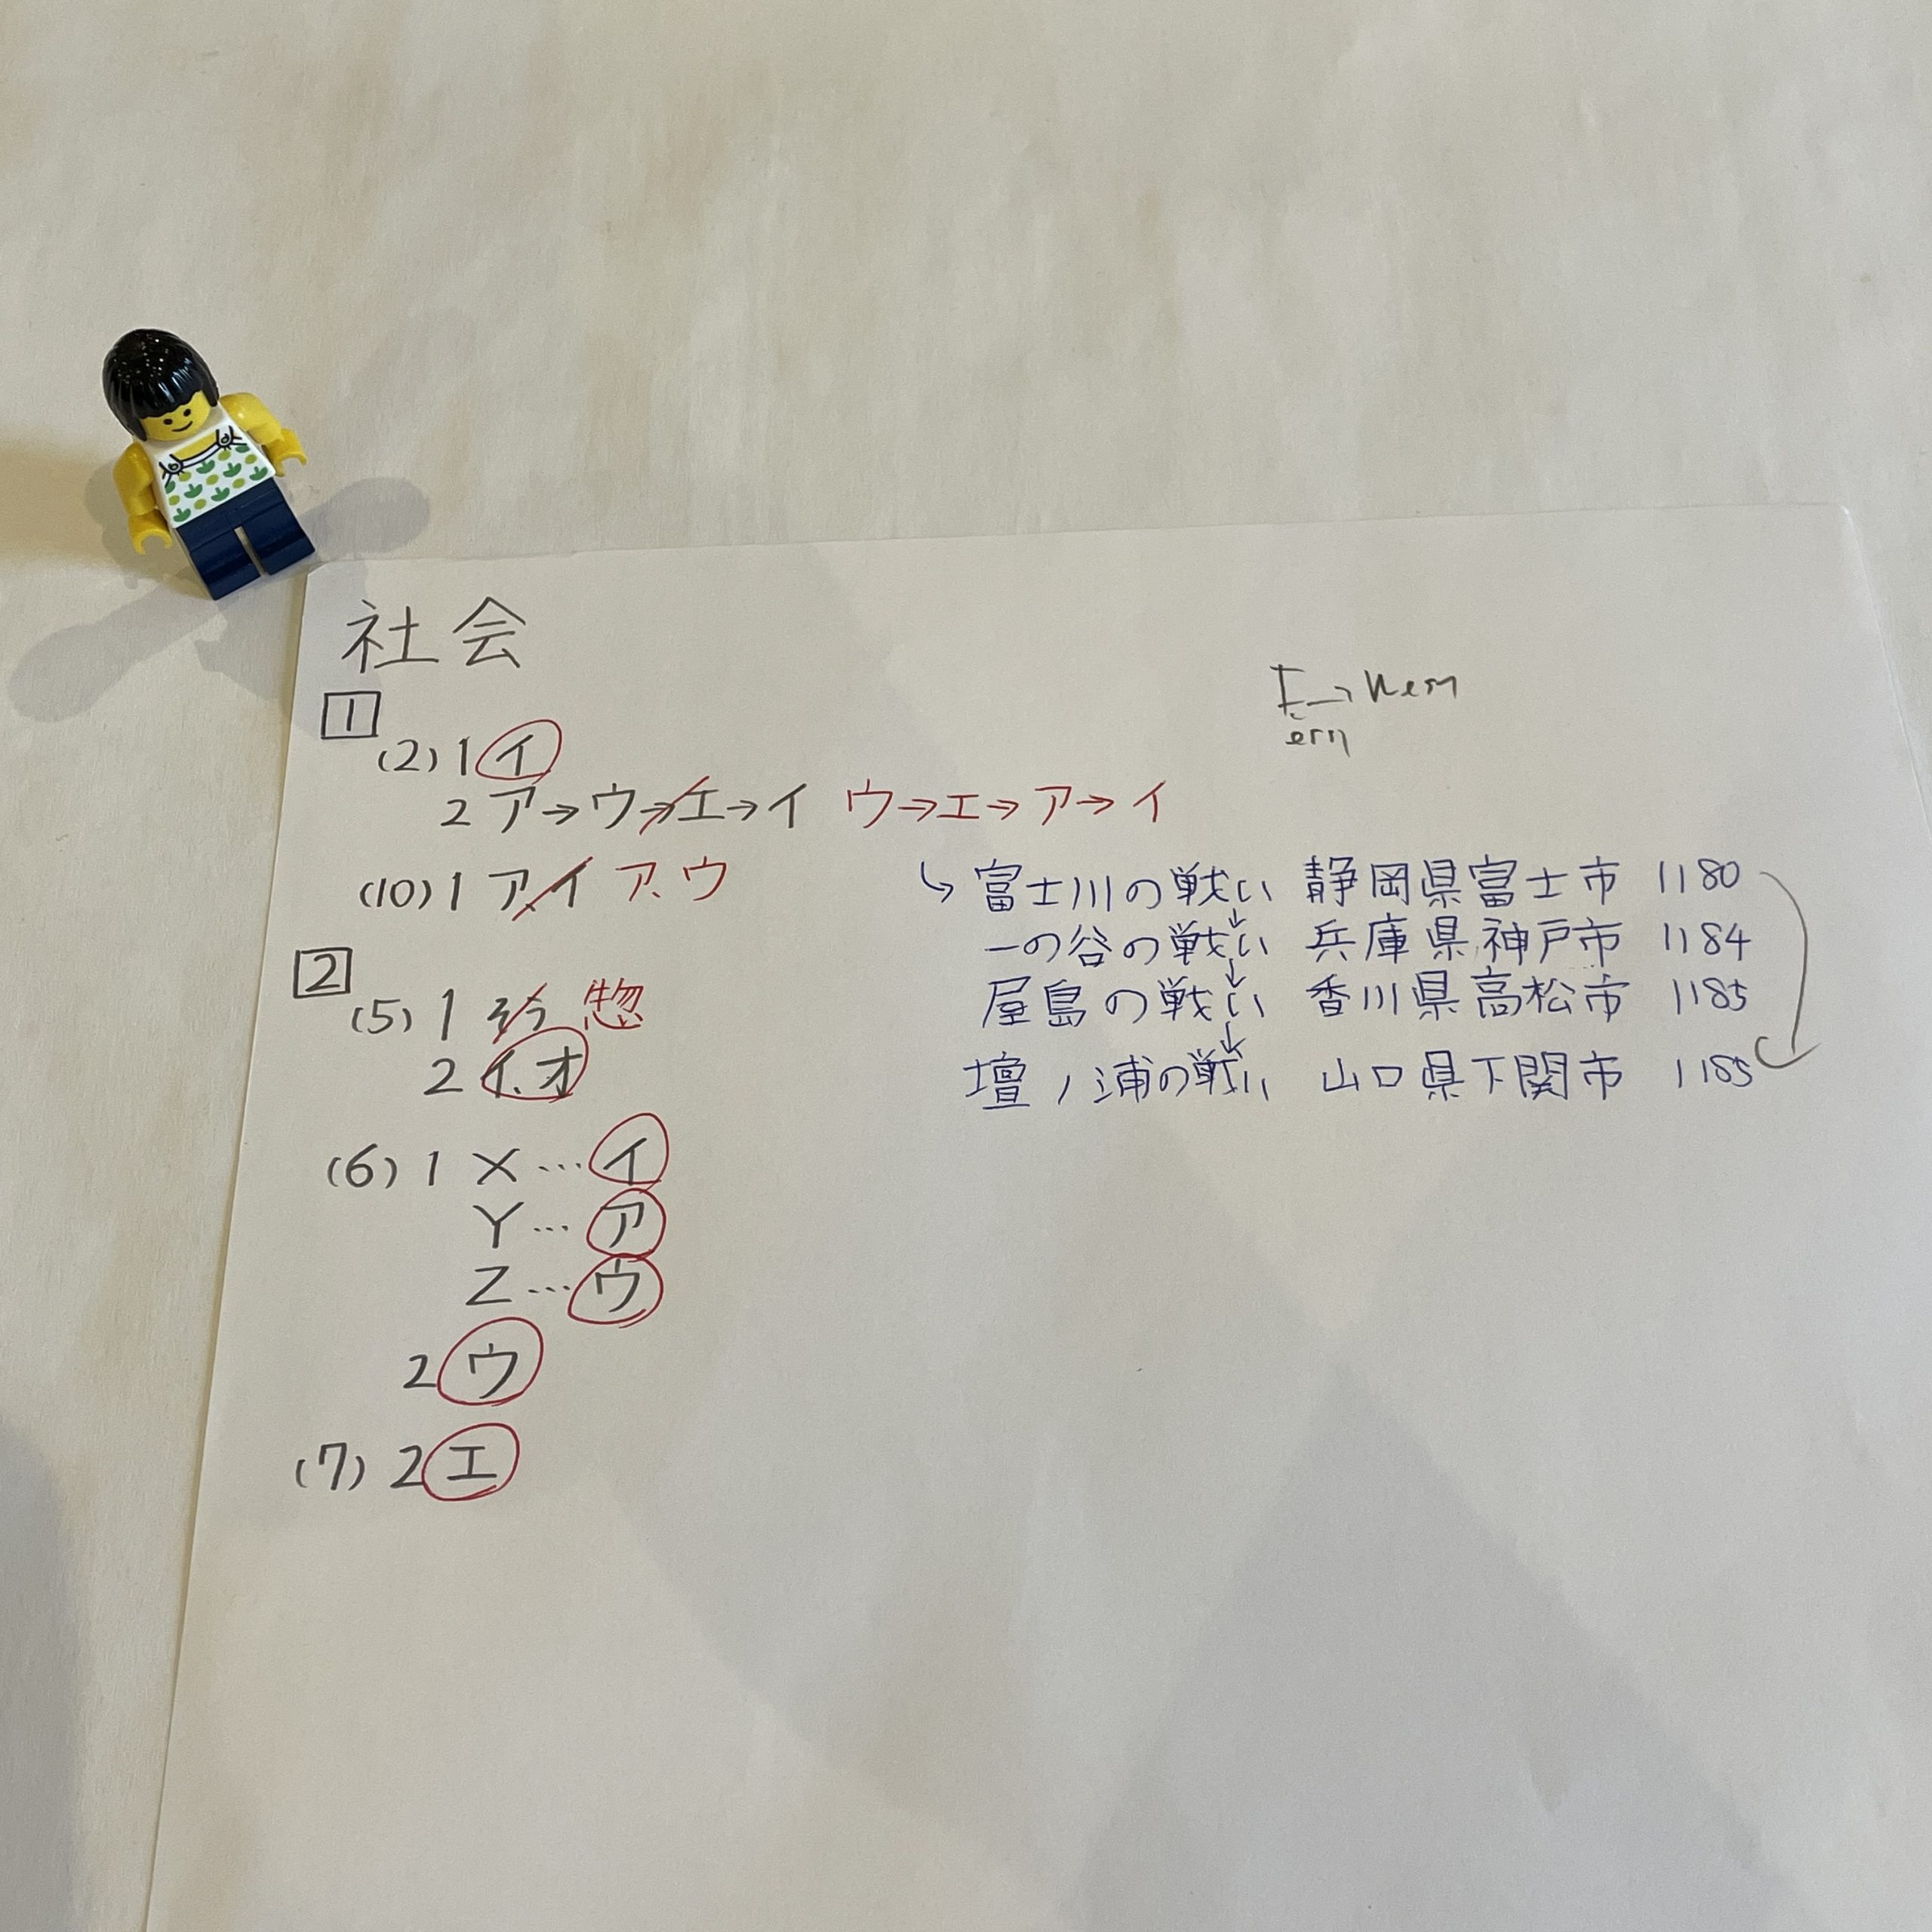 社会
1
(2) 1 イ
2 ア→ウ→エ→イ ウ→エ→ア→イ
(10) 1 ア、イ ア、ウ
2
(5) 1 惣
2 イ、オ
(6) 1 X…イ
Y…ア
Z…ウ
2 ウ
(7) 2 エ
↳ 富士川の戦い 静岡県富士市 1180
↓
一の谷の戦い 兵庫県神戸市 1184
↓
屋島の戦い 香川県高松市 1185
↓
壇ノ浦の戦い 山口県下関市 1185